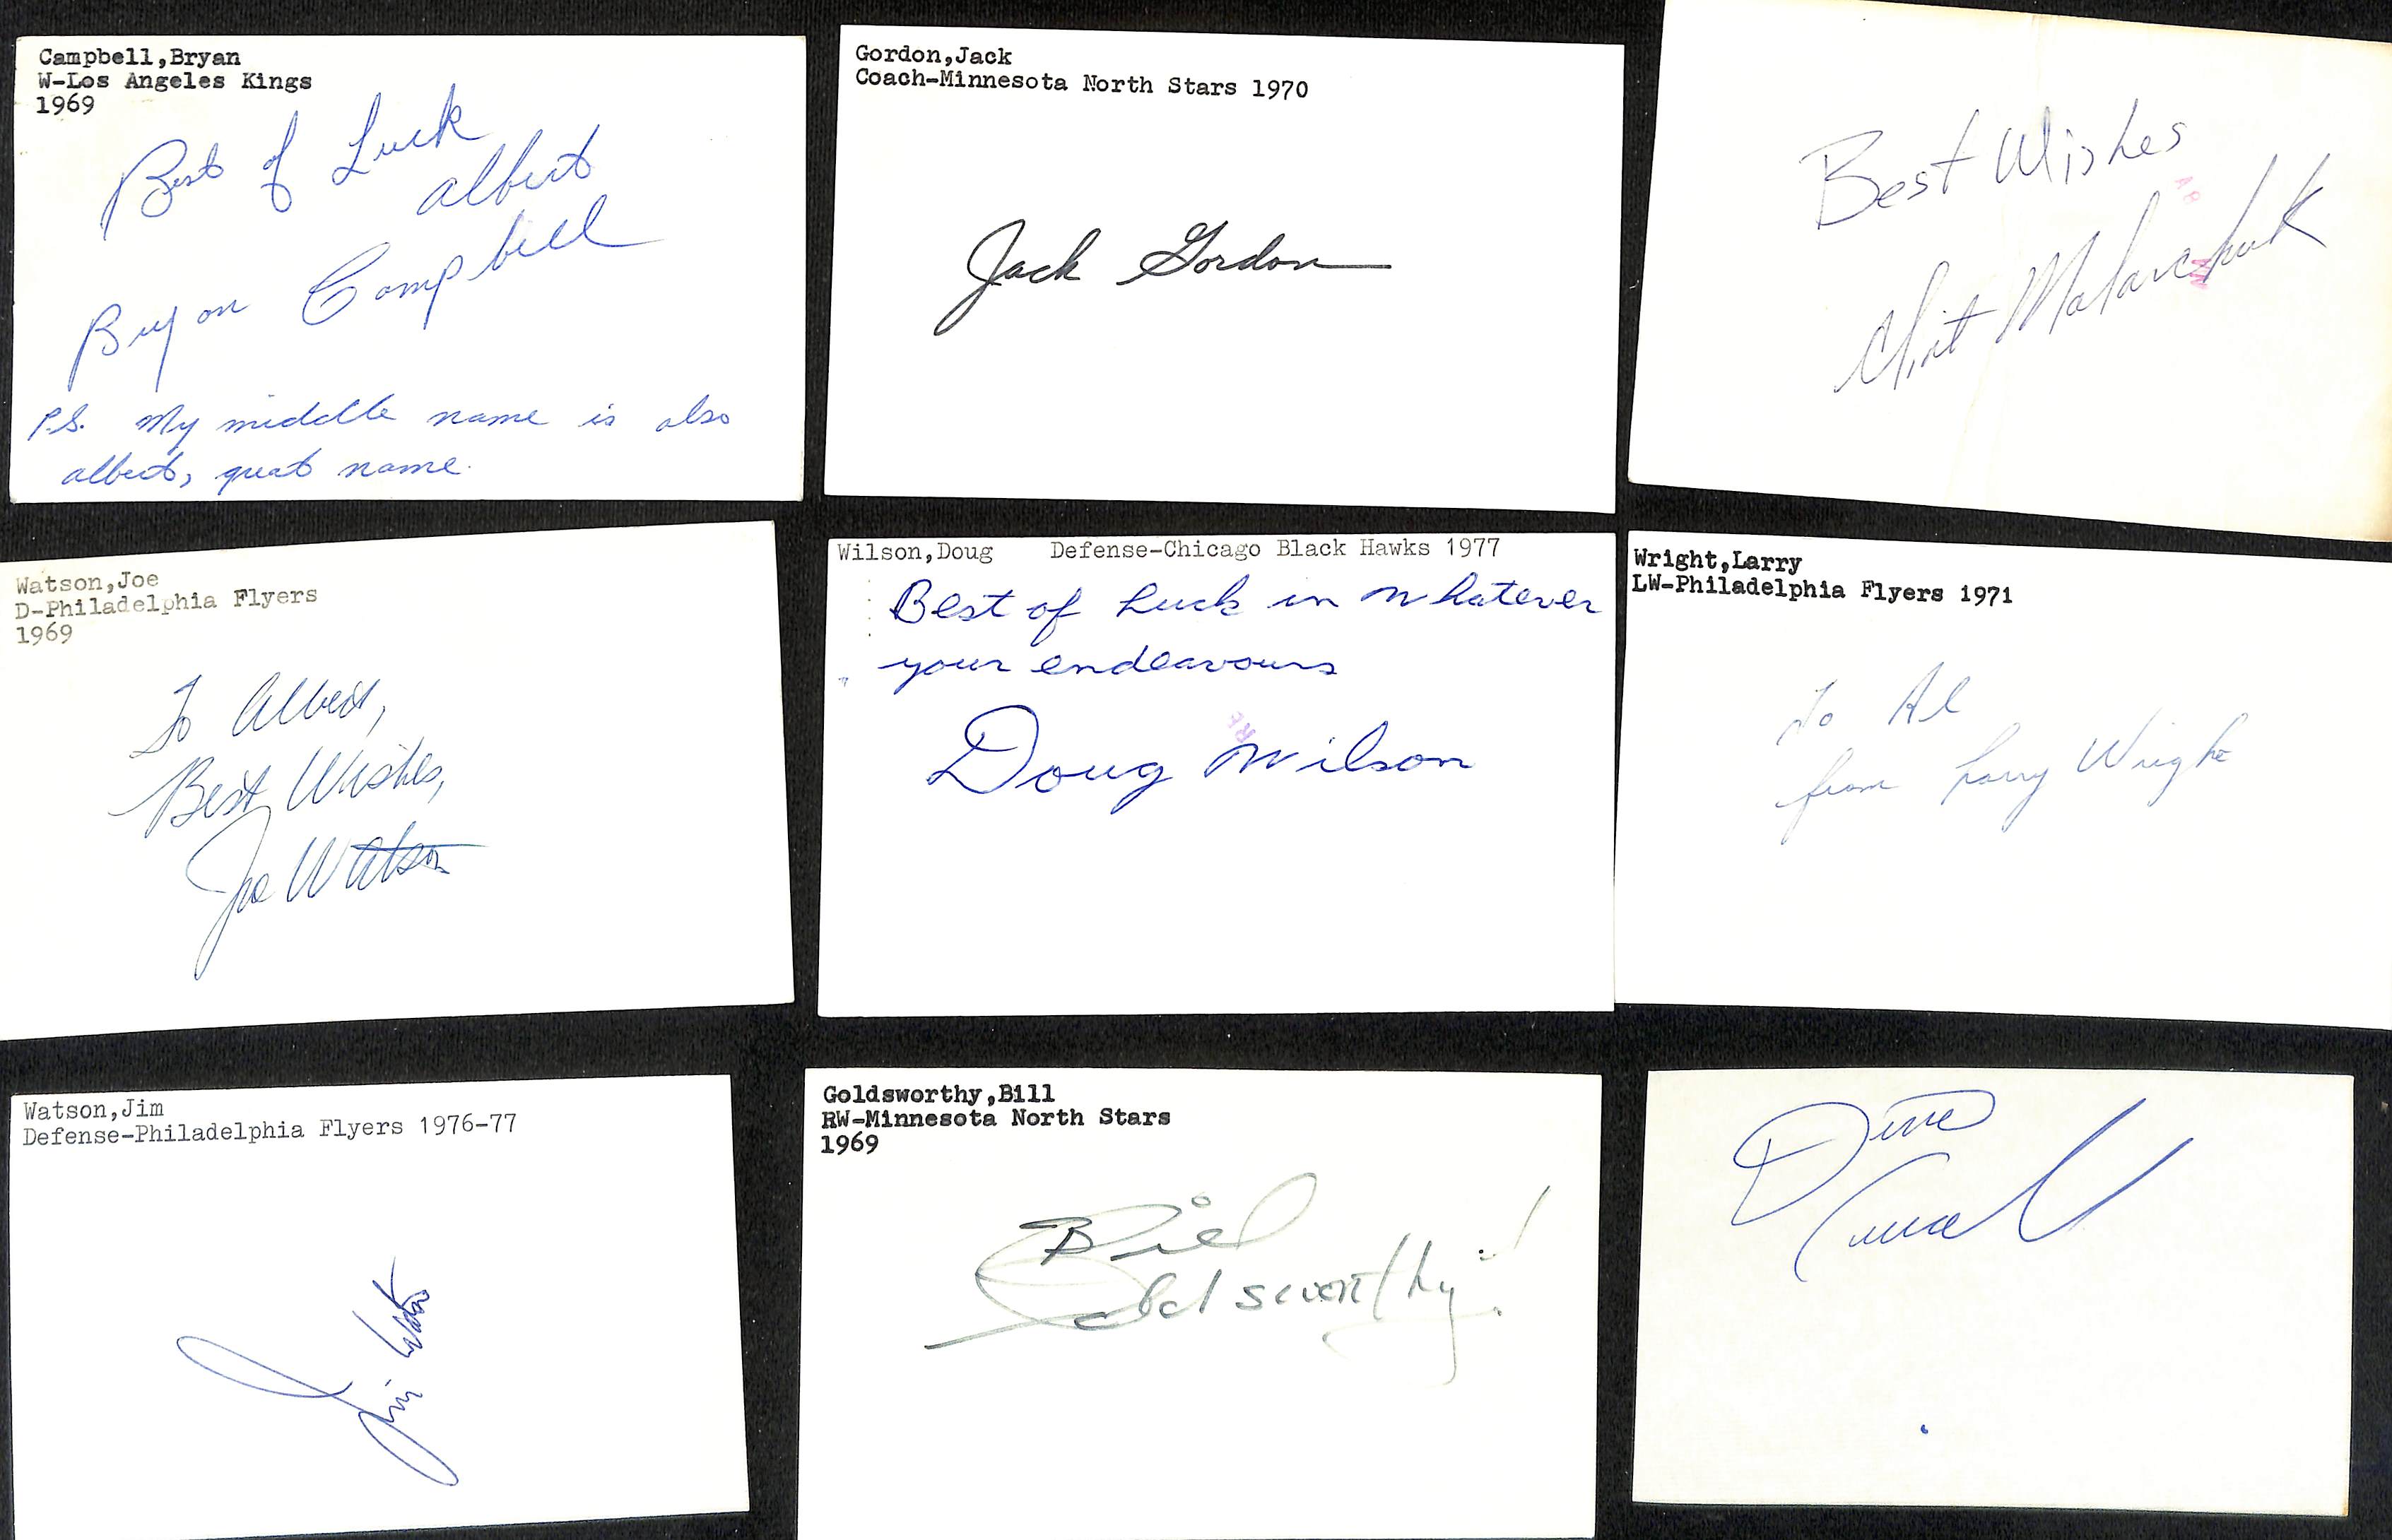 Campbell,Bryan
W-Los Angeles Kings
1969
Best of Luck
albert
Bryan Campbell
P.S. My middle name is also
albert, great name.
Gordon,Jack
Coach-Minnesota North Stars 1970
Jack Gordon
Best Wishes
Clint Malarchuk
Watson,Joe
D-Philadelphia Flyers
1969
To Albert,
Best Wishes,
Joe Watson
Wilson,Doug Defense-Chicago Black Hawks 1977
Best of Luck in whatever
your endeavours
Doug Wilson
Wright,Larry
LW-Philadelphia Flyers 1971
To Al
from Larry Wright
Watson,Jim
Defense-Philadelphia Flyers 1976-77
Jim Watson
Goldsworthy,Bill
RW-Minnesota North Stars
1969
Bill
Goldsworthy!